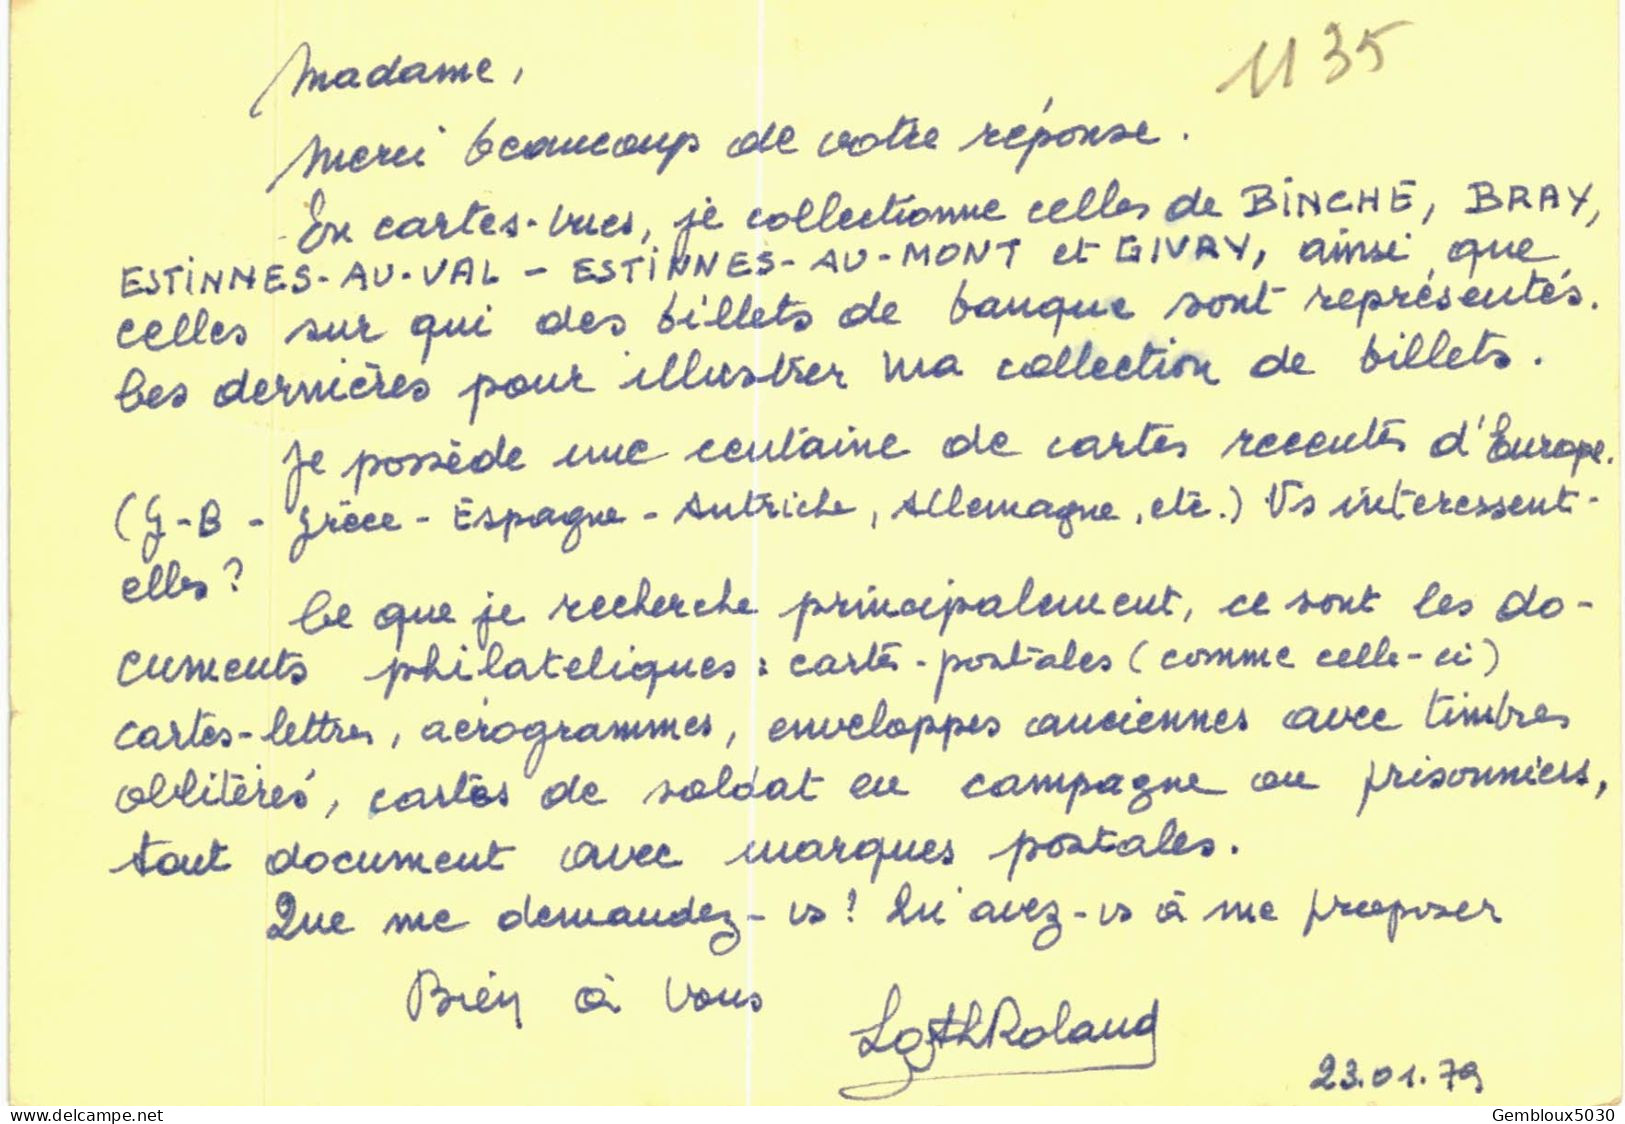 1135
Madame,
Merci beaucoup de votre réponse.
En cartes-vues, je collectionne celles de BINCHE, BRAY,
ESTINNES-AU-VAL - ESTINNES-AU-MONT et GIVRY, ainsi que
celles sur qui des billets de banque sont représentés.
Ces dernières pour illustrer ma collection de billets.
Je possède une centaine de cartes recentes d'Europe.
(G-B - Grèce - Espagne - Autriche, Allemagne, etc.) Vs interessent-
elles?
Ce que je recherche principalement, ce sont les do-
cuments philateliques: cartes-postales (comme celle-ci)
cartes-lettres, aérogrammes, enveloppes anciennes avec timbres
oblitérés, cartes de soldat en campagne ou prisonniers,
tout document avec marques postales.
Que me demandez-vs? Qu'avez-vs à me proposer
Bien à vous
Roland
23.01.79
www.delcampe.net
Gembloux5030